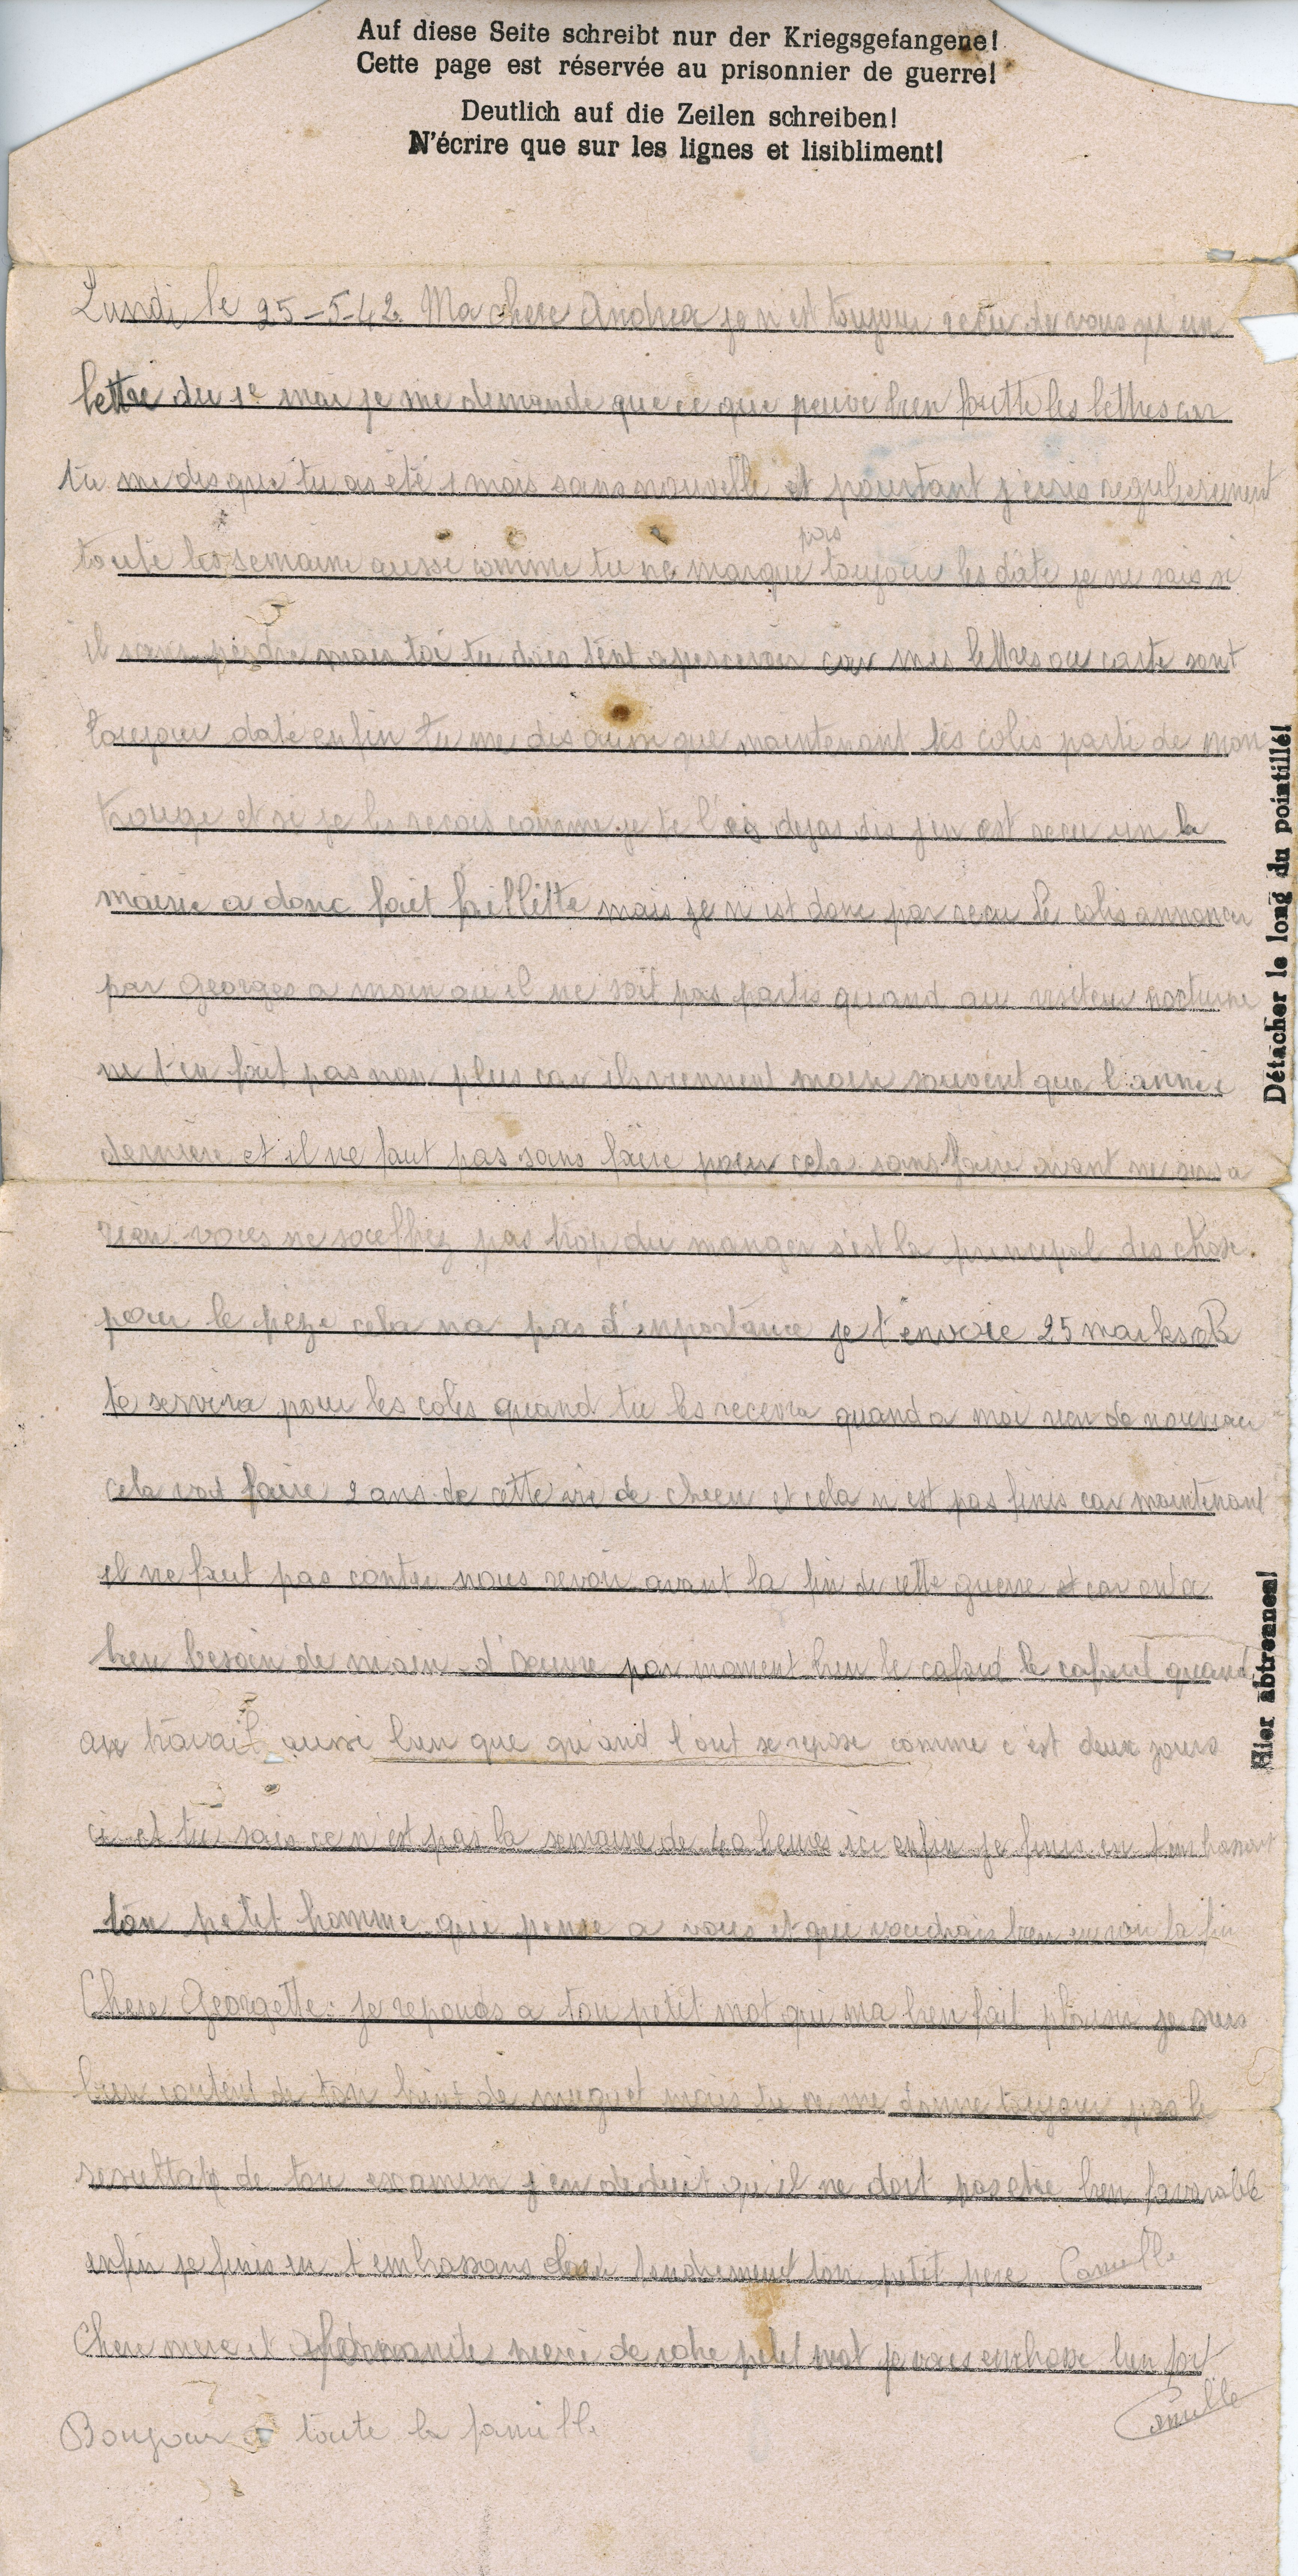 Auf diese Seite schreibt nur der Kriegsgefangene!
Cette page est réservée au prisonnier de guerre!
Deutlich auf die Zeilen schreiben!
N'écrire que sur les lignes et lisibliment!
Lundi le 25-5-42. Ma chere Andrea je n est toujour recu de vous qu un
lettre du 1e mai je me demande que ce que peuve bien les lettres car
tu me dis que tu as été 1 mois sans nouvelle et pourtant j ecris regulierement
toute les semaine aussi comme tu ne marque pas toujour les date je ne sais si
il perdre mais toi tu dois tent apercevoir car mes lettres ou carte sont
toujour daté enfin tu me dis aussi que maintenant les colis parte de mon
trouge et si je les recois comme je te l'ai dejas dis j'en est recu un la
mairie a donc fait mais je n est donc pas recu le colis annoncer
par Georges a moin qu il ne soit pas partis quand au visiteur nocturne
ne t en fait pas non plus car ils viennent moin souvent que l'année
derniere et il ne faut pas sans faire pour cela sans faire avant ne sers a
rien vous ne souffrez pas trop du manger s'est la principal des chose.
pour le cela na pas d'importance je t'envoie 25 marks
te servira pour les colis quand tu les recevra quand a moi rien de nouveau
cela vat faire 2 ans de cette vie de chien et cela n est pas finis car maintenant
il ne faut pas conter nous revoir avant la fin de cette guerre car
bien besoin de main d'oeuvre par moment bien le cafard le cafard quand
au travail aussi bien que quand l'ont se repose comme c'est deux jours
ci et tu sais ce n est pas la semaine de 40 heures ici enfin je finis en t embrassant
ton petit homme qui pense a vous et qui voudrais bien en voir la fin
Chere Georgette: je reponds a ton petit mot qui ma bien fait plaisir je suis
bien content de ton brint de muguet mais tu ne me donne toujour pas le
de ton examen j'en deduit qu il ne doit pas etre bien favorable
enfin je finis en t'embrassans bien tendrement ton petit pere Camille
Chere mere et merci de votre petit mot je vous embrasse bien fort
Camille
Bonjour a toute la famille
Détacher le long du pointillé!
Hier abtrennen!